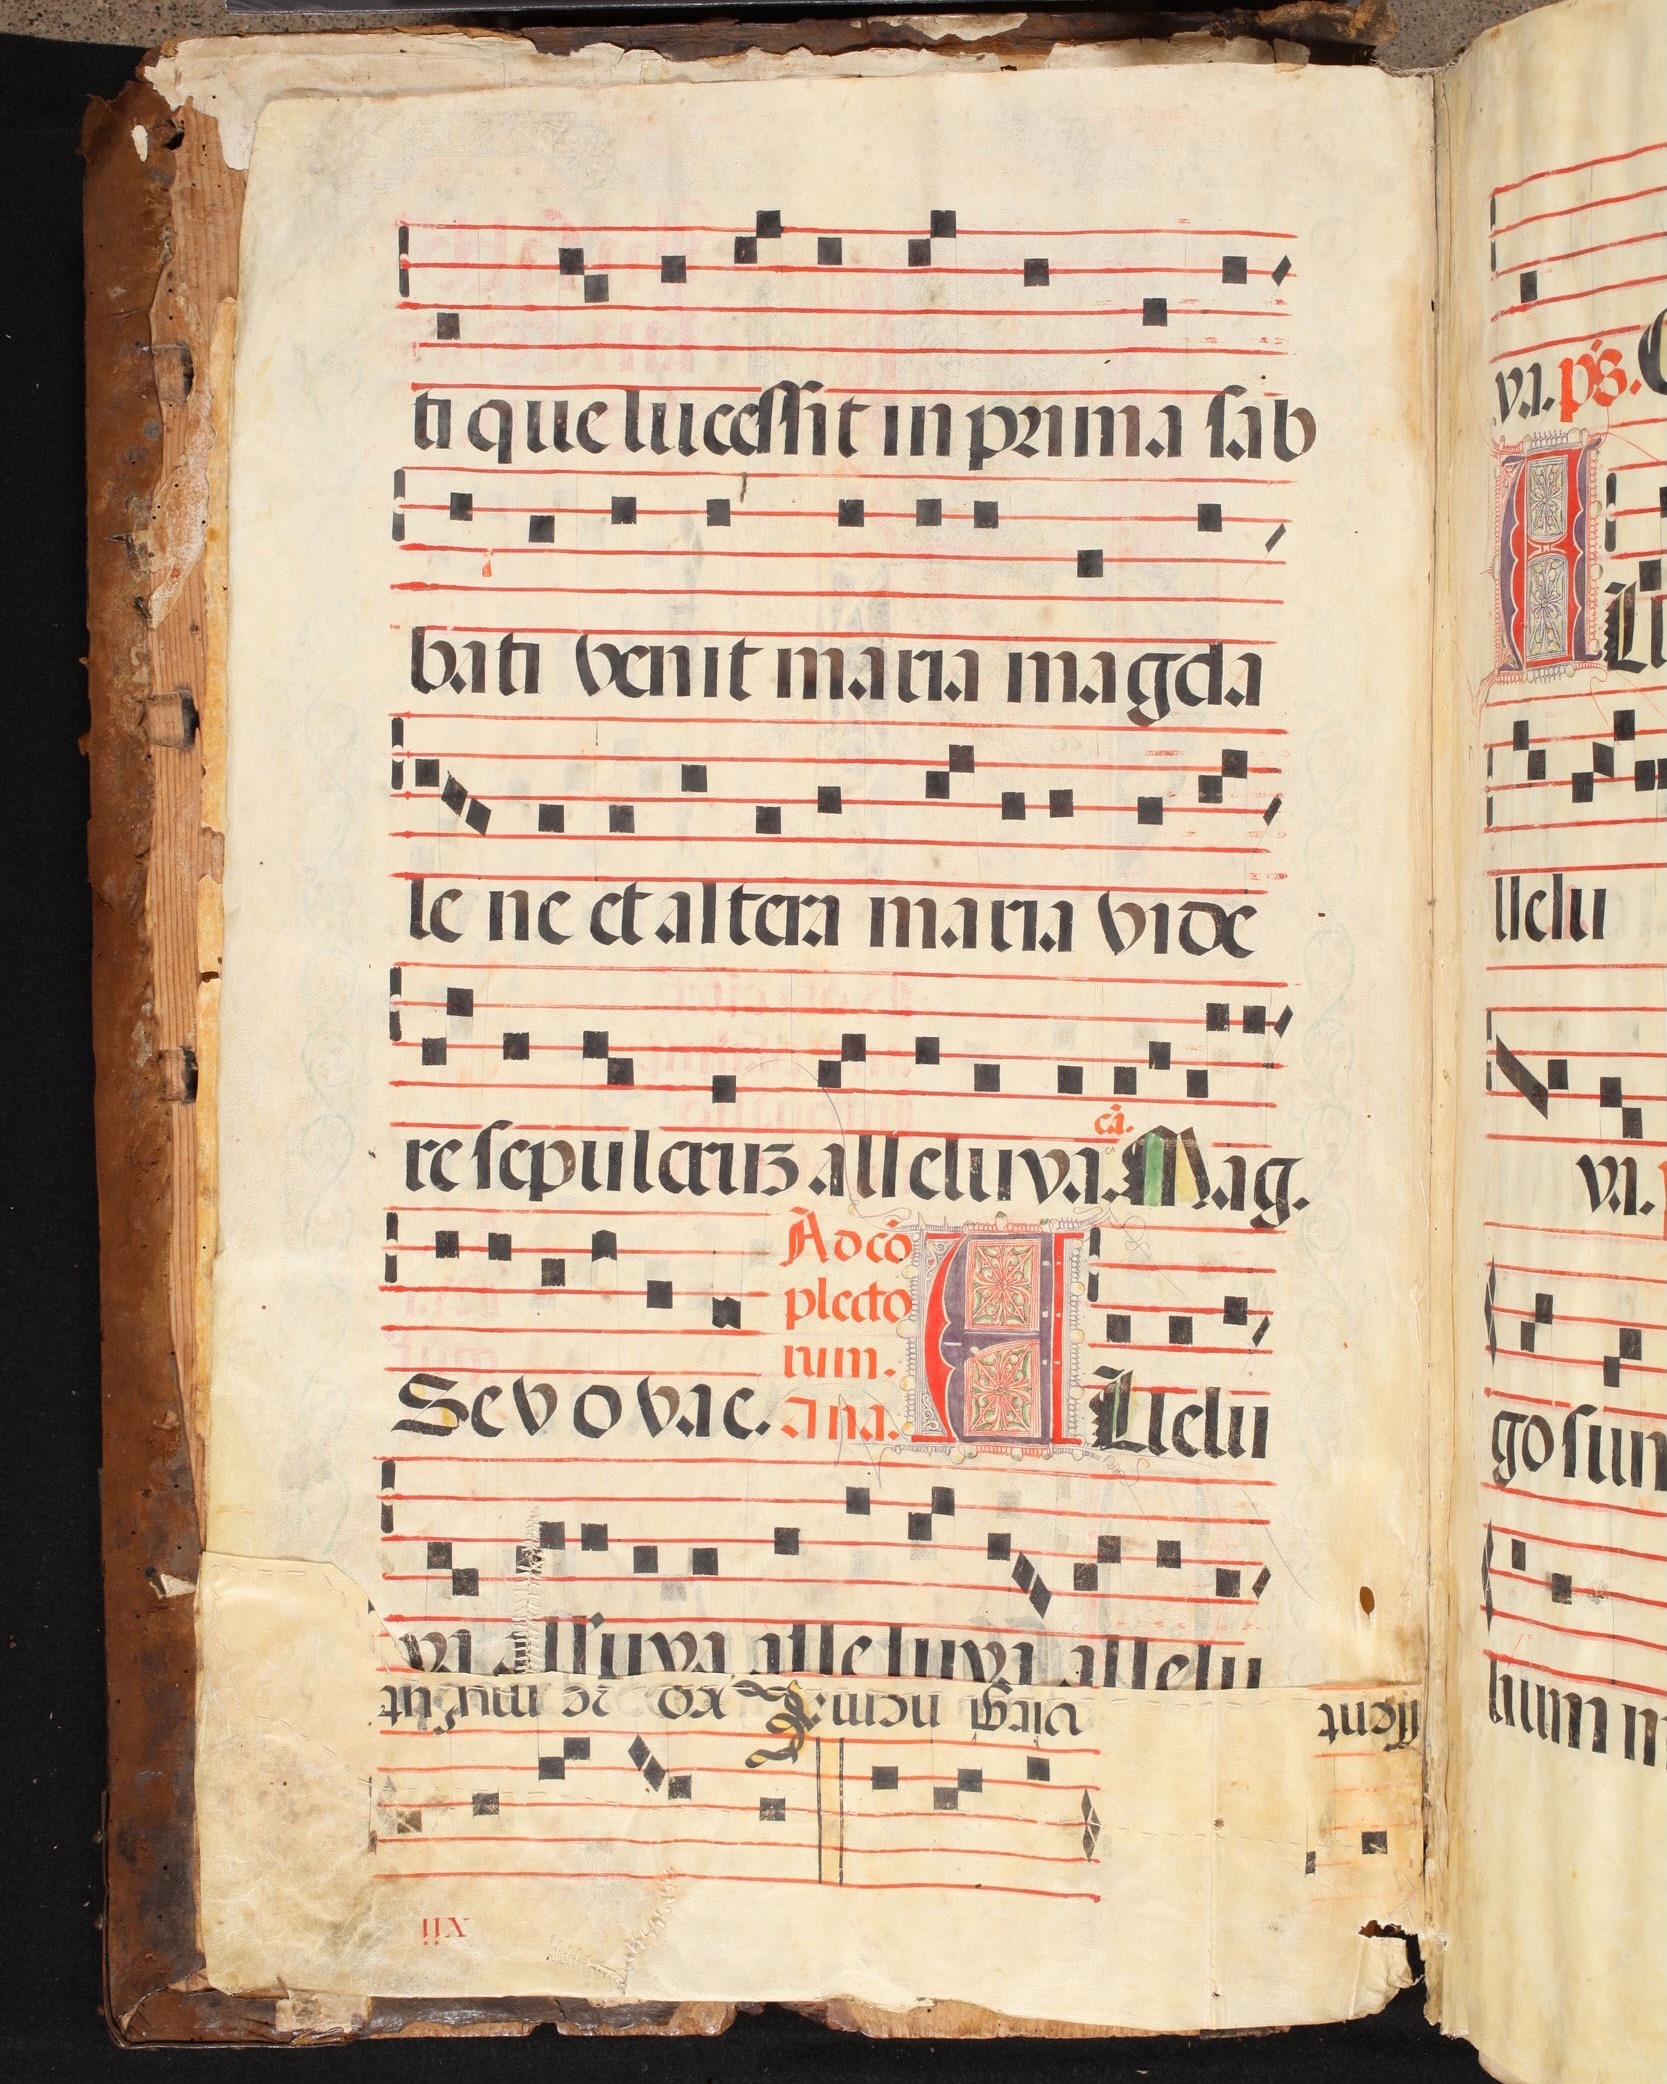 ti que lucessit in prima sab
bati venit maria magda
le ne et altera maria vide
re sepulcruz alleluya. ca. Mag.
Sevovae. Ad co
plecto
rum.
ana. Allelu
ya alluya alleluya allelu
virgi nem:
ssent
xii
ya. ps.
All
llelu
ya.
go sun
lium m